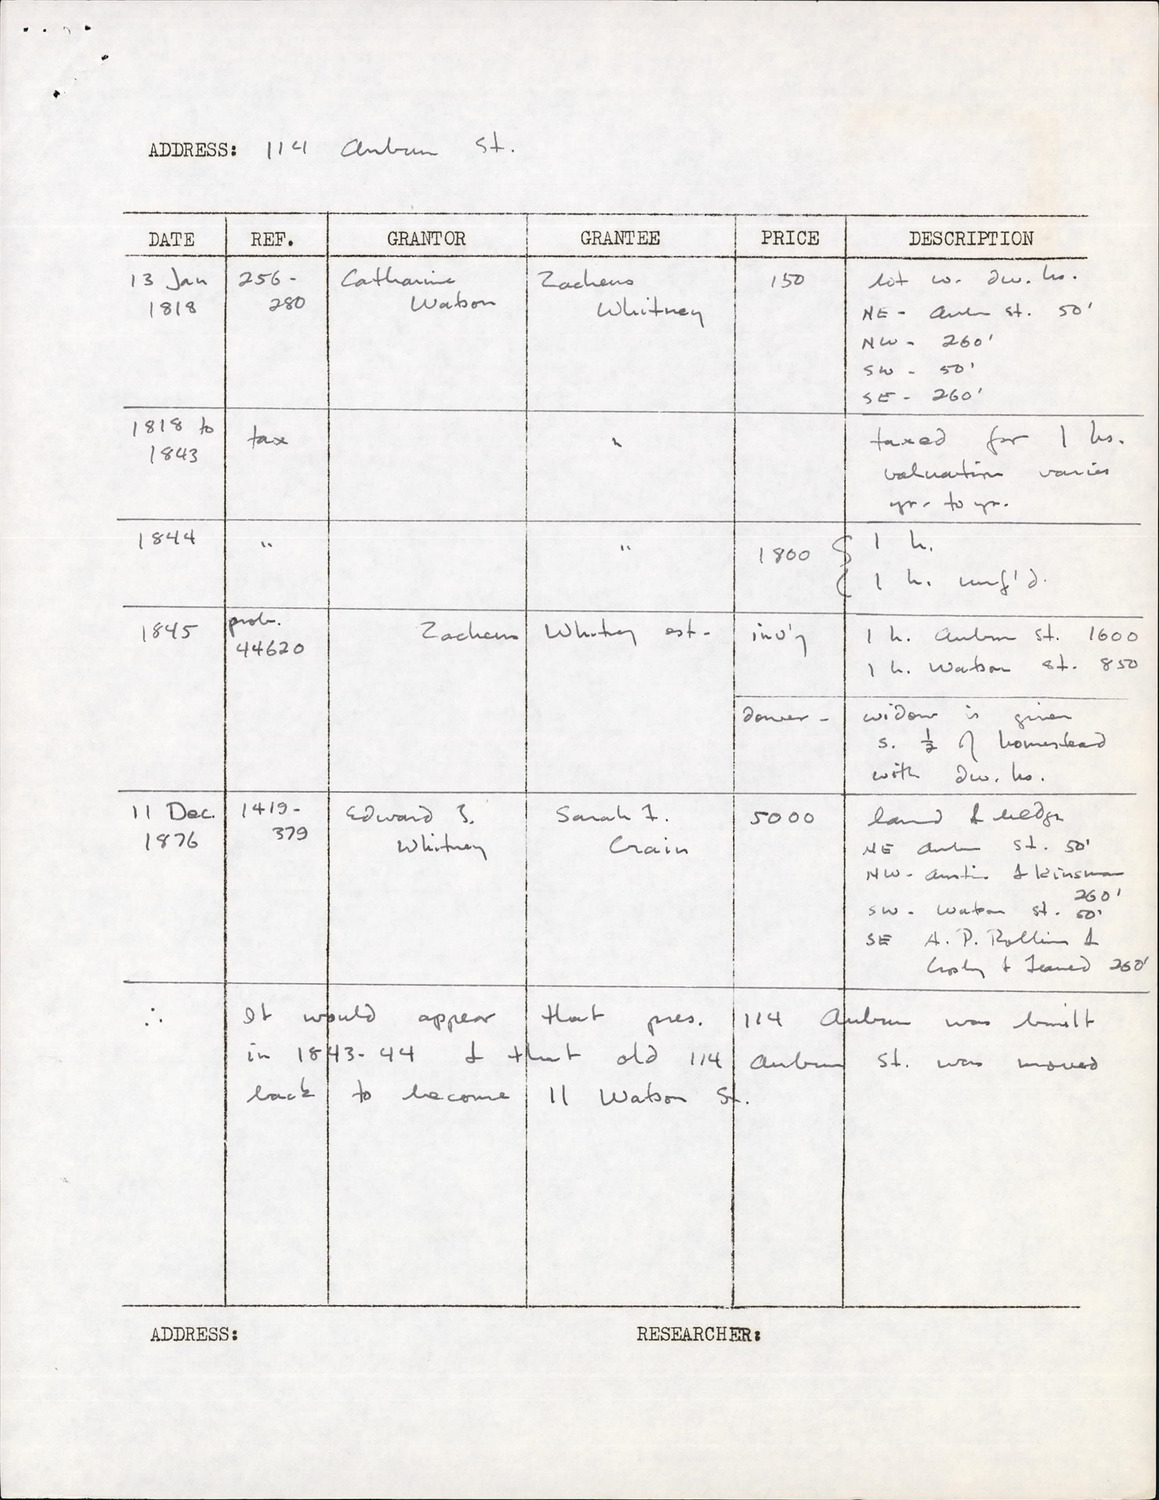 ADDRESS: 114 Auburn St.
DATE REF. GRANTOR GRANTEE PRICE DESCRIPTION
13 Jan 256- Catharine Zacheus 150 lot w. dw. hs.
1818 280 Watson Whitney NE - Auburn St. 50'
NW - 260'
SW - 50'
SE - 260'
1818 to tax " taxed for 1 hs.
1843 valuation varies
yr. to yr.
1844 " " 1800 { 1 h.
1 h. unf'd.
1845 prob. Zacheus Whitney est- inv'y 1 h. Auburn St. 1600
44620 1 h. Watson St. 850
dower - widow is given
s. ½ of homestead
with dw. hs.
11 Dec. 1419- Edward I. Sarah F. 5000 land & bldgs
1876 379 Whitney Crain NE Auburn St. 50'
NW - Austin & Kinsman
260'
SW - Watson St. 50'
SE A. P. Rollins &
Crosby & Leaned 260'
∴ It would appear that pres. 114 Auburn was built
in 1843-44 & that old 114 Auburn St. was moved
back to become 11 Watson St.
ADDRESS: RESEARCHER: